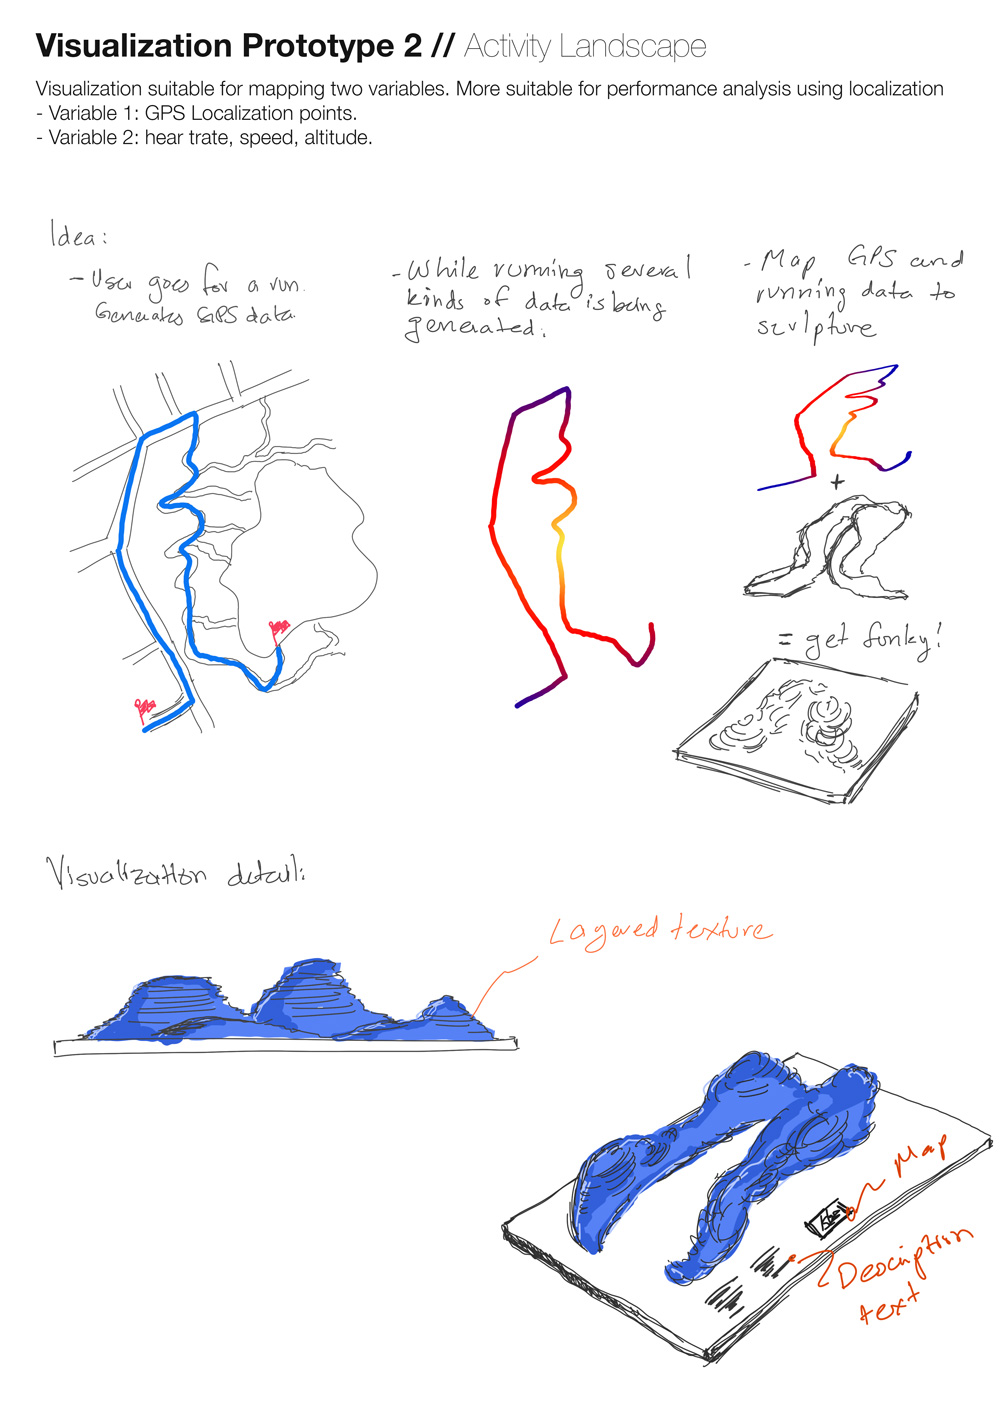 Visualization Prototype 2 // Activity Landscape
Visualization suitable for mapping two variables. More suitable for performance analysis using localization
- Variable 1: GPS Localization points.
- Variable 2: hear trate, speed, altitude.
Idea:
- User goes for a run.
Generates GPS data
- While running several
kinds of data is being
generated.
- Map GPS and
running data to
sculpture
+
= get funky!
Visualization detail:
Layered texture
Map
Description
text